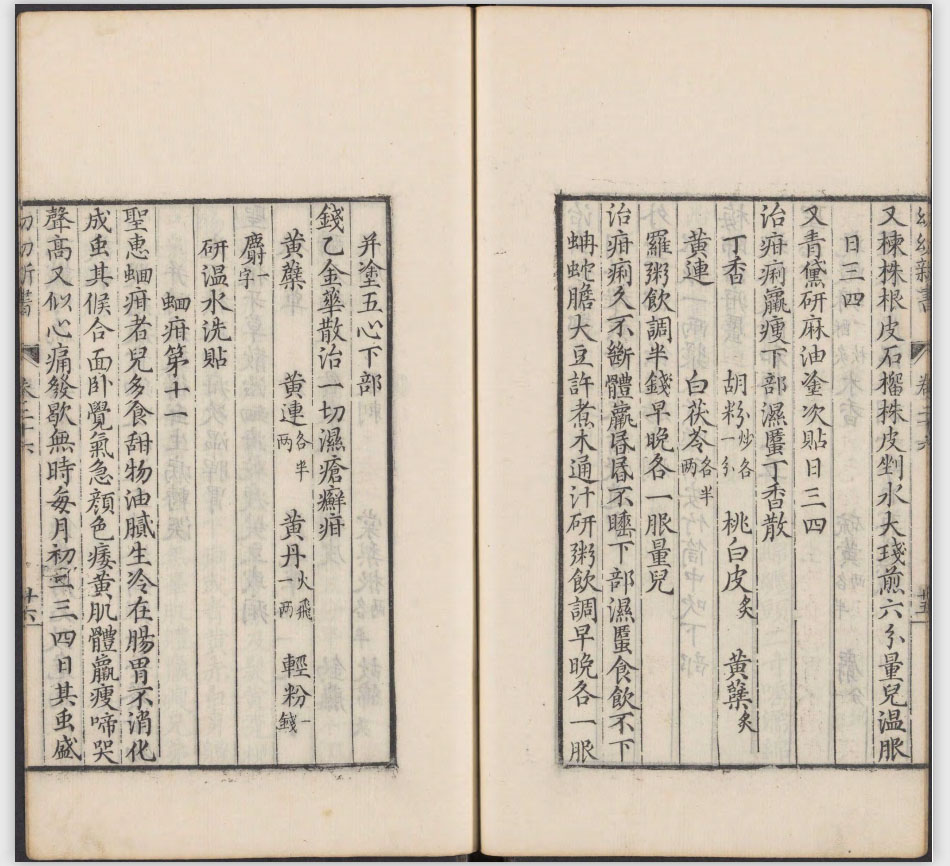 又楝株根皮石榴株皮剉水大琖煎六分量兒温服
日三四
又青黛研麻油塗次貼日三四
治疳痢羸瘦下部濕䘌丁香散
丁香 胡粉炒各一分 桃白皮炙 黄蘗炙
黄連 白茯苓各半两
羅粥飲調半錢早晚各一服量兒
治疳痢久不斷體羸昏昏不睡下部濕䘌食飲不下
蚺蛇膽大豆許煮木通汁研粥飲調早晚各一服
并塗五心下部
錢乙金華散治一切濕瘡癬疳
黄蘗 黄連各半两 黄丹火飛一两 輕粉一錢
麝一字
研温水洗貼
蛔疳第十一
聖惠蛔疳者兒多食甜物油膩生冷在腸胃不消化
成虫其候合面卧覺氣急顔色痿黄肌體羸瘦啼哭
聲高又似心痛發歇無時每月初二三四日其虫盛